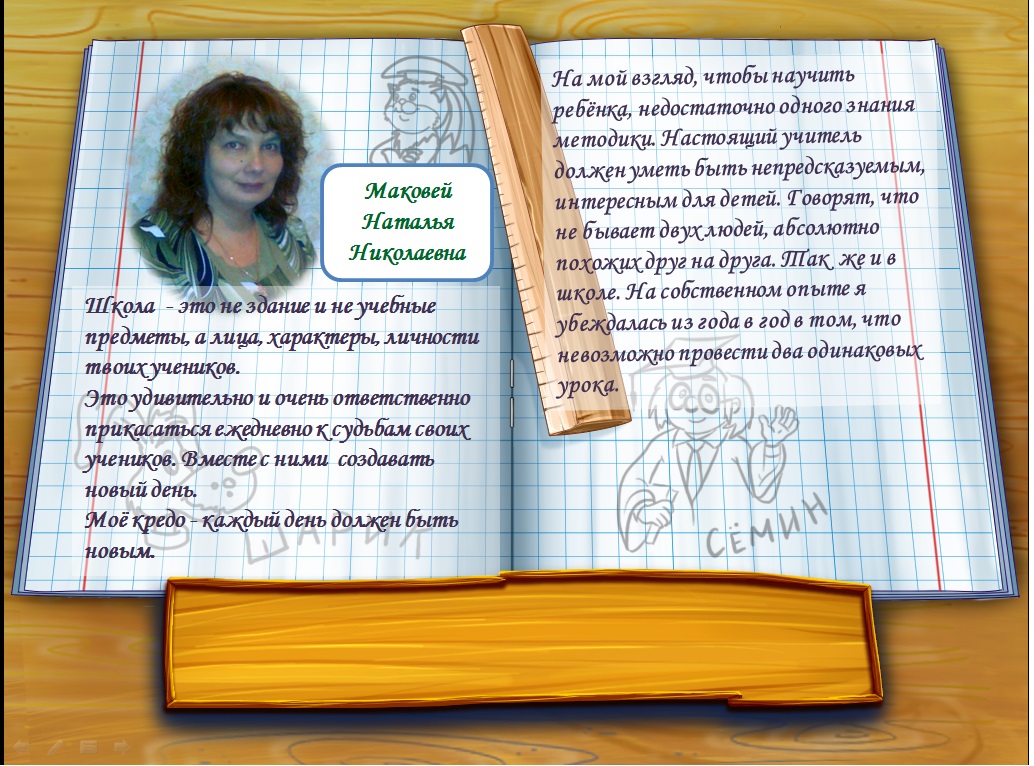 Маковей
Наталья
Николаевна
Школа - это не здание и не учебные
предметы, а лица, характеры, личности
твоих учеников.
Это удивительно и очень ответственно
прикасаться ежедневно к судьбам своих
учеников. Вместе с ними создавать
новый день.
Моё кредо - каждый день должен быть
новым.
ШАРИК
На мой взгляд, чтобы научить
ребёнка, недостаточно одного знания
методики. Настоящий учитель
должен уметь быть непредсказуемым,
интересным для детей. Говорят, что
не бывает двух людей, абсолютно
похожих друг на друга. Так же и в
школе. На собственном опыте я
убеждалась из года в год в том, что
невозможно провести два одинаковых
урока.
СЁМИН